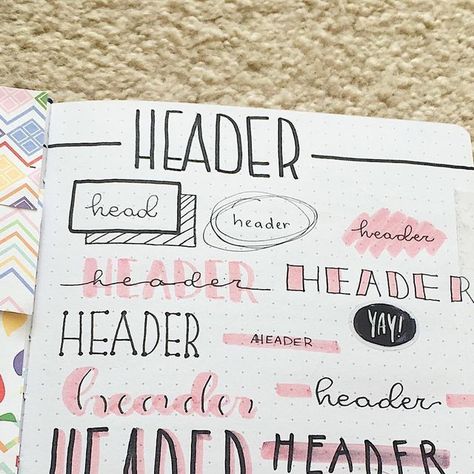 HEADER
head
header
header
header HEADER
HEADER
HEADER
YAY!
HEADER
HEADER
header
header
HEADER
HEADER